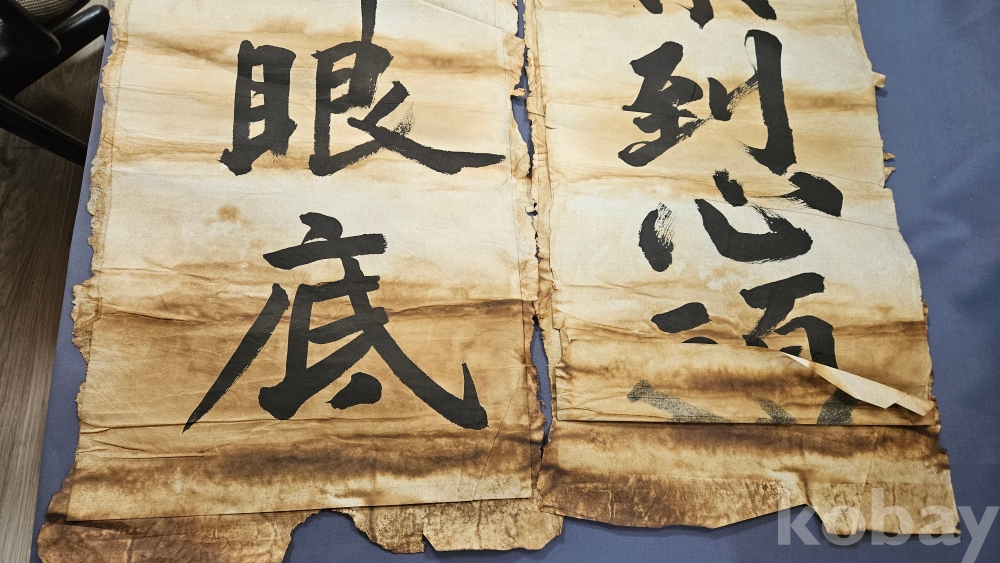 到心頭
眼底
kobay